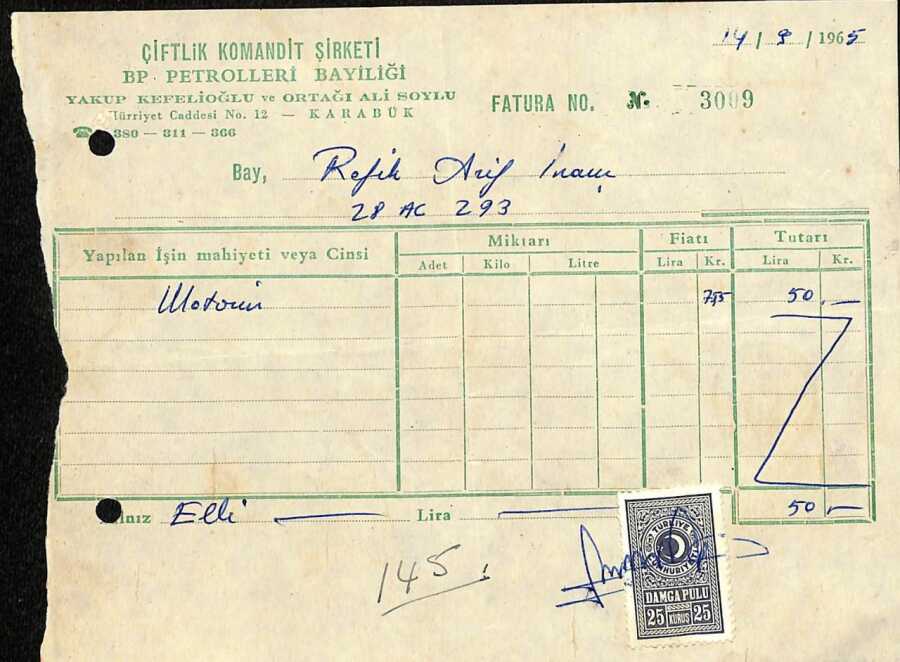 14 / 9 / 1965
ÇİFTLİK KOMANDİT ŞİRKETİ
BP. PETROLLERİ BAYİLİĞİ
YAKUP KEFELİOĞLU ve ORTAĞI ALİ SOYLU
Hürriyet Caddesi No. 12 — KARABÜK
380 — 311 — 366
FATURA NO. № 3009
Bay, Refik Arif İnanç
28 AC 293
Yapılan İşin mahiyeti veya Cinsi Miktarı Fiatı Tutarı
Adet Kilo Litre Lira Kr. Lira Kr.
Motorin 50 ,—
Yalnız Elli — Lira — 50 ,—
145
TÜRKİYE CUMHURİYETİ
DAMGA PULU
25 KURUŞ 25